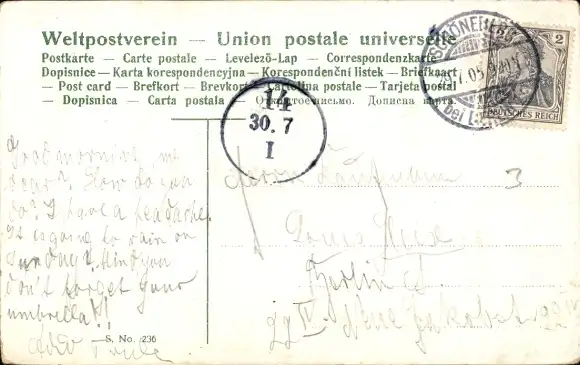 Weltpostverein — Union postale universelle
Postkarte — Carte postale — Levelező-Lap — Correspondenzkarte
Dopisnice — Karta korespondencyjna — Korespondenční lístek — Briefkaart
— Post card — Brefkort — Brevkort — Cartolina postale — Tarjeta postal
— Dopisnica — Carta postala — Открытое письмо. Дописна карта.
2
DEUTSCHES REICH
14
30. 7
I
Good morning, my
dear? How do you
do? I have a headache.
It is going to rain on
Sunday? Mind you
don't forget your
umbrella!!
S. No. 236
Herrn Kaufmann
3
Louis
Berlin
Neue Jakobstr.